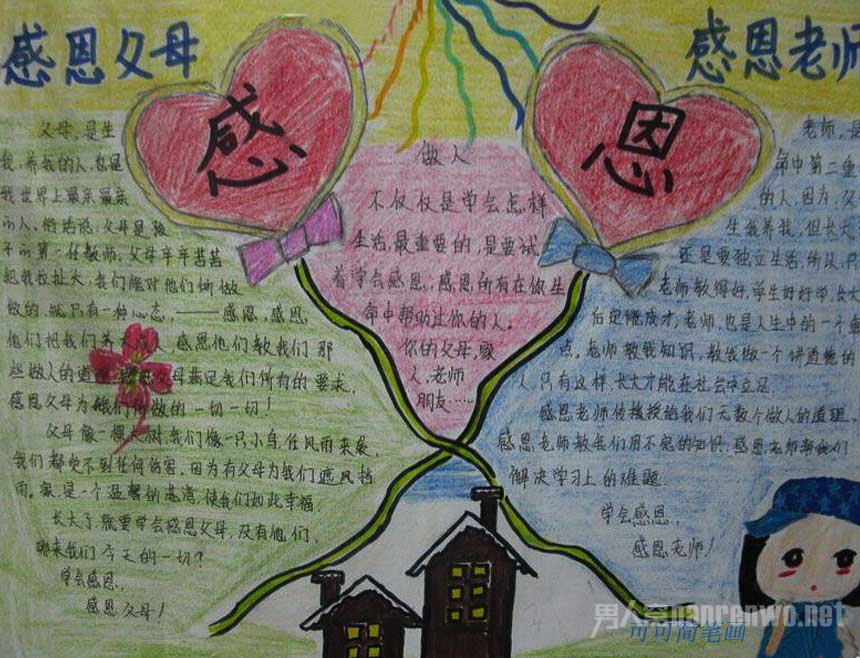 感恩父母
感恩老师
感
恩
父母,是生
我,养我的人,也是
我世界上最亲最亲
的人。俗话说:父母是孩
子的第一任教师。父母辛辛苦苦
把我拉扯大,我们能对他们所做
做的,就只有一种心态,——感恩,感恩
他们把我们养大成人,感恩他们教我们那
些做人的道理,感恩父母满足我们所有的要求,
感恩父母为我们所做的一切一切!
父母像一棵大树,我们像一只小鸟,任风雨来袭,
我们都受不到任何伤害,因为有父母为我们遮风挡
雨。家是一个温馨的港湾,使我们如此幸福,
长大了,就要学会感恩父母,没有他们,
哪来我们今天的一切?
学会感恩,
感恩父母!
做人
不仅仅是学会怎样
生活,最重要的,是要试
着学会感恩,感恩所有在你生
命中帮助过你的人。
你的父母,家
人,老师
朋友……
老师,是
命中第二重
的人,因为,父
生我养我,但长大
还是要独立生活,所以,只
老师教得好,学生好好学,长大
后定能成才,老师,也是人生中的一个重
点。老师教我知识,教我做一个讲道德的
人,只有这样,长大才能在社会中立足
感恩老师传授给我们无数个做人的道理,
感恩老师教我们用不完的知识,感恩老师帮我们
解决学习上的难题.
学会感恩,
感恩老师!
男人窝nanrenwo.net
可可简笔画